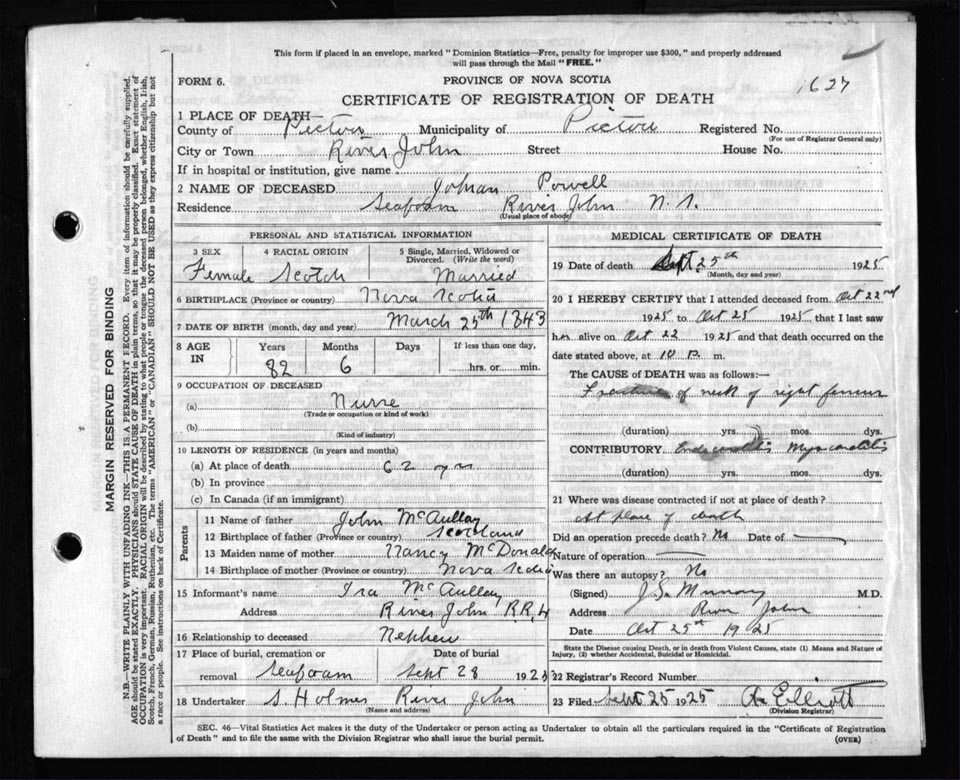 This form if placed in an envelope, marked "Dominion Statistics—Free, penalty for improper use $300," and properly addressed
will pass through the Mail "FREE."
FORM 6.
PROVINCE OF NOVA SCOTIA
1627
CERTIFICATE OF REGISTRATION OF DEATH
1 PLACE OF DEATH—
County of Pictou Municipality of Pictou Registered No.
(For use of Registrar General only)
City or Town River John Street House No.
If in hospital or institution, give name
2 NAME OF DECEASED Johan Powell
Residence Seafoam River John N. S.
(Usual place of abode)
PERSONAL AND STATISTICAL INFORMATION
3 SEX 4 RACIAL ORIGIN 5 Single, Married, Widowed or
Divorced. (Write the word)
Female Scotch Married
6 BIRTHPLACE (Province or country) Nova Scotia
7 DATE OF BIRTH (month, day and year) March 25th 1843
8 AGE IN Years Months Days If less than one day,
82 6 hrs. or min.
9 OCCUPATION OF DECEASED
(a) Nurse
(Trade or occupation or kind of work)
(b)
(Kind of industry)
10 LENGTH OF RESIDENCE (in years and months)
(a) At place of death 62 yrs
(b) In province
(c) In Canada (if an immigrant)
Parents
11 Name of father John McAullay
12 Birthplace of father (Province or country) Scotland
13 Maiden name of mother Nancy McDonald
14 Birthplace of mother (Province or country) Nova Scotia
15 Informant's name Ira McAullay
Address River John RR, 4
16 Relationship to deceased Nephew
17 Place of burial, cremation or Date of burial
removal Seafoam Sept 28 1925
18 Undertaker S. Holmes River John
(Name and address)
MEDICAL CERTIFICATE OF DEATH
19 Date of death Sept. 25th 1925
(Month, day and year)
20 I HEREBY CERTIFY that I attended deceased from Oct 22nd
1925 to Oct 25 1925 that I last saw
her alive on Oct 22 1925 and that death occurred on the
date stated above, at 10 P. m.
The CAUSE of DEATH was as follows:—
Fracture of neck of right femur
(duration) yrs. mos. dys.
CONTRIBUTORY Myocarditis
(duration) yrs. mos. dys.
21 Where was disease contracted if not at place of death?
At place of death
Did an operation precede death? No Date of
Nature of operation
Was there an autopsy? No
(Signed) J. S. Murray M.D.
Address River John
Date Oct 25th 1925
State the Disease causing Death, or in death from Violent Causes, state (1) Means and Nature of
Injury, (2) whether Accidental, Suicidal or Homicidal.
22 Registrar's Record Number
23 Filed Sept 25 1925 Elliott
(Division Registrar)
SEC. 46—Vital Statistics Act makes it the duty of the Undertaker or person acting as Undertaker to obtain all the particulars required in the "Certificate of Registration
of Death" and to file the same with the Division Registrar who shall issue the burial permit. (OVER)
MARGIN RESERVED FOR BINDING
N.B.—WRITE PLAINLY WITH UNFADING INK—THIS IS A PERMANENT RECORD. Every item of information should be carefully supplied.
AGE should be stated EXACTLY. PHYSICIANS should STATE CAUSE OF DEATH in plain terms, so that it may be properly classified. Exact statement of
OCCUPATION is very important. RACIAL ORIGIN will be described by stating to what people or tongue the deceased person belonged, whether English, Irish,
Scotch, French, German, Russian, Ruthenian, etc. The terms "AMERICAN" or "CANADIAN" SHOULD NOT BE USED as they express citizenship but not
a race or people. See instructions on back of Certificate.